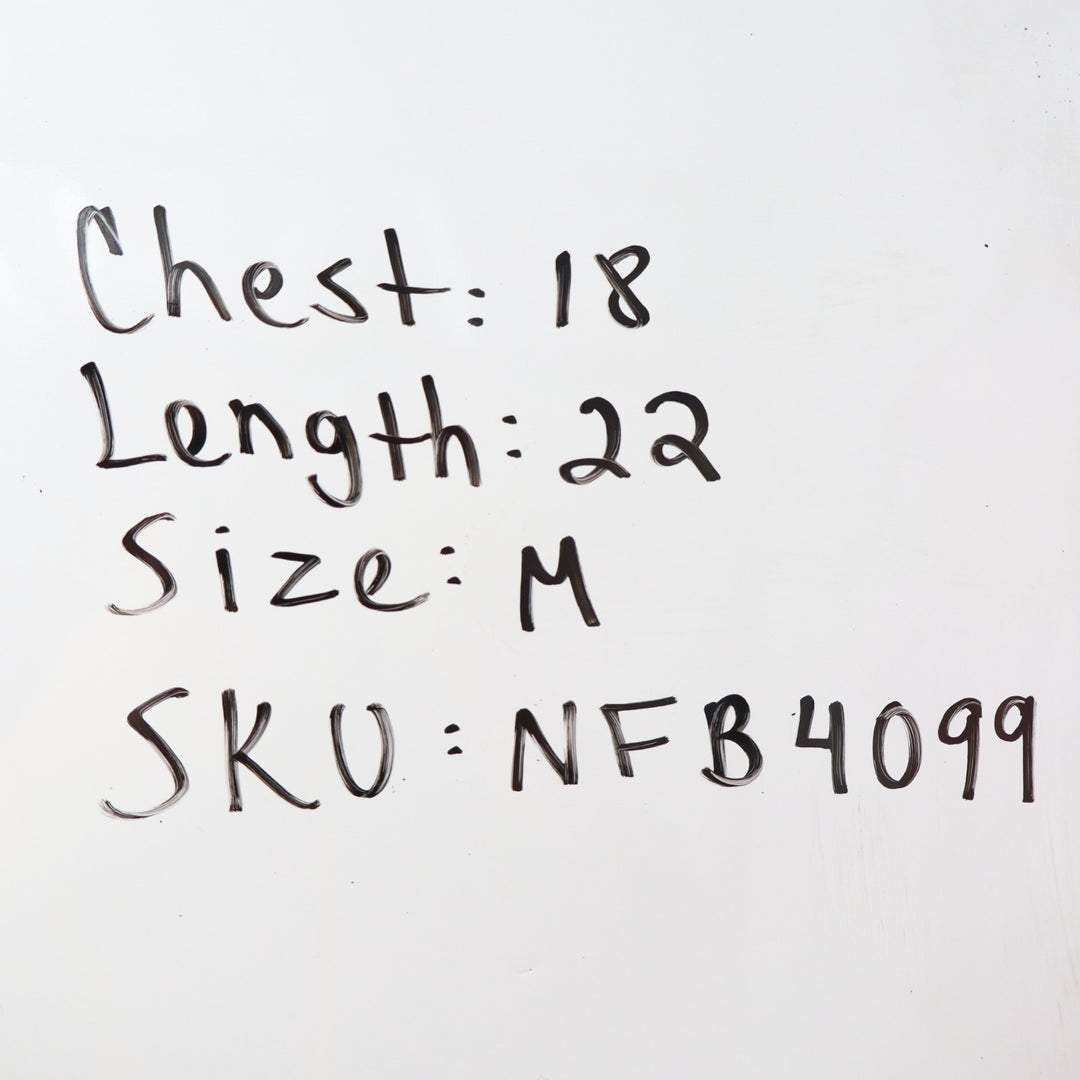 Chest: 18
Length: 22
Size: M
SKU: NFB4099